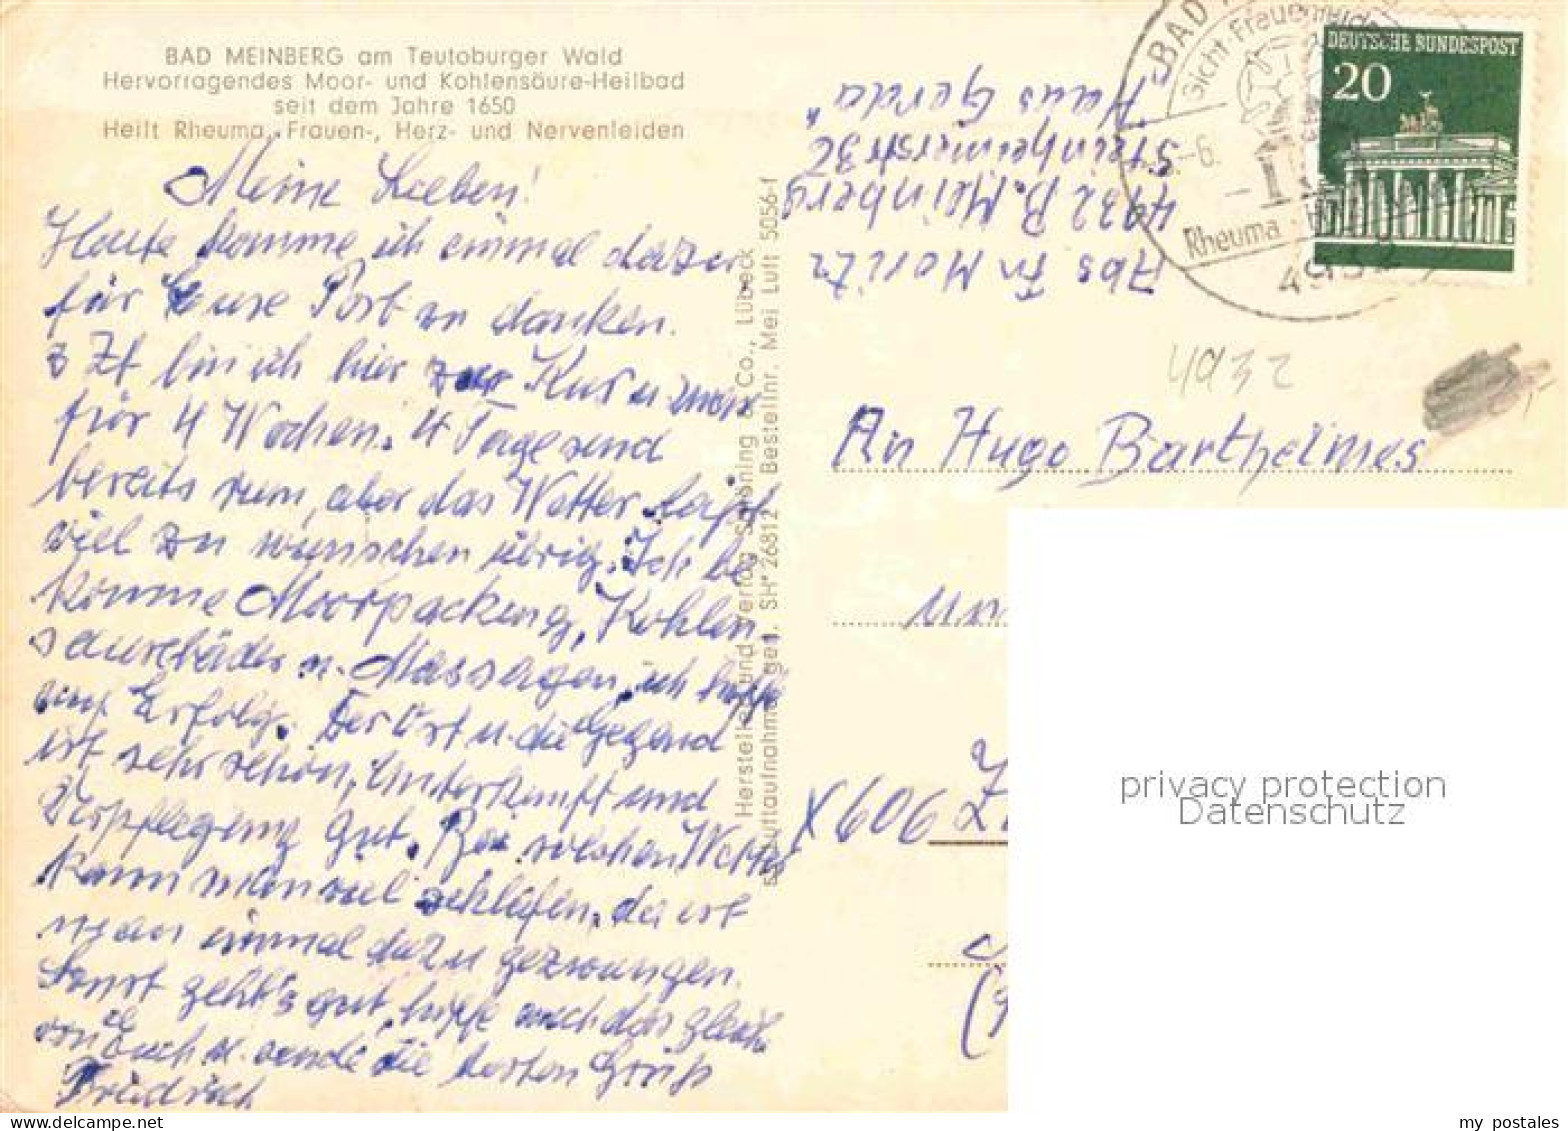 BAD MEINBERG am Teutoburger Wald
Hervorragendes Moor- und Kohlensäure-Heilbad
seit dem Jahre 1650
Heilt Rheuma, Frauen-, Herz- und Nervenleiden
Meine Lieben!
Heute komme ich einmal dazu
für Eure Post zu danken.
z Zt bin ich hier zur Kur u zwar
für 4 Wochen. 4 Tage sind
bereits rum, aber das Wetter läßt
viel zu wünschen übrig. Ich be
komme Moorpackung, Kohlen
säurebäder u. Massagen, ich hoffe
auf Erfolg. Der Ort u. die Gegend
ist sehr schön, Unterkunft und
Verpflegung gut. Bei solchen Wetter
kann man viel schlafen, da ist
man einmal dazu gezwungen.
Sonst geht's gut, hoffe auch das gleiche
von Euch u. sende die besten Grüße
Friedrich
Hersteller und Verlag Schöning & Co., Lübeck
Luftaufnahme gen. SH 26812 Bestellnr. Mei Luft 5056-f
Abs Fr Moritz
4932 B. Meinberg
Steinheimerstr 32
"Haus Gerda"
BAD
Gicht Frauenleiden
-6.
Rheuma
4932
DEUTSCHE BUNDESPOST
20
4932
An Hugo Barthelmes
un
X 606
privacy protection
Datenschutz
my postales